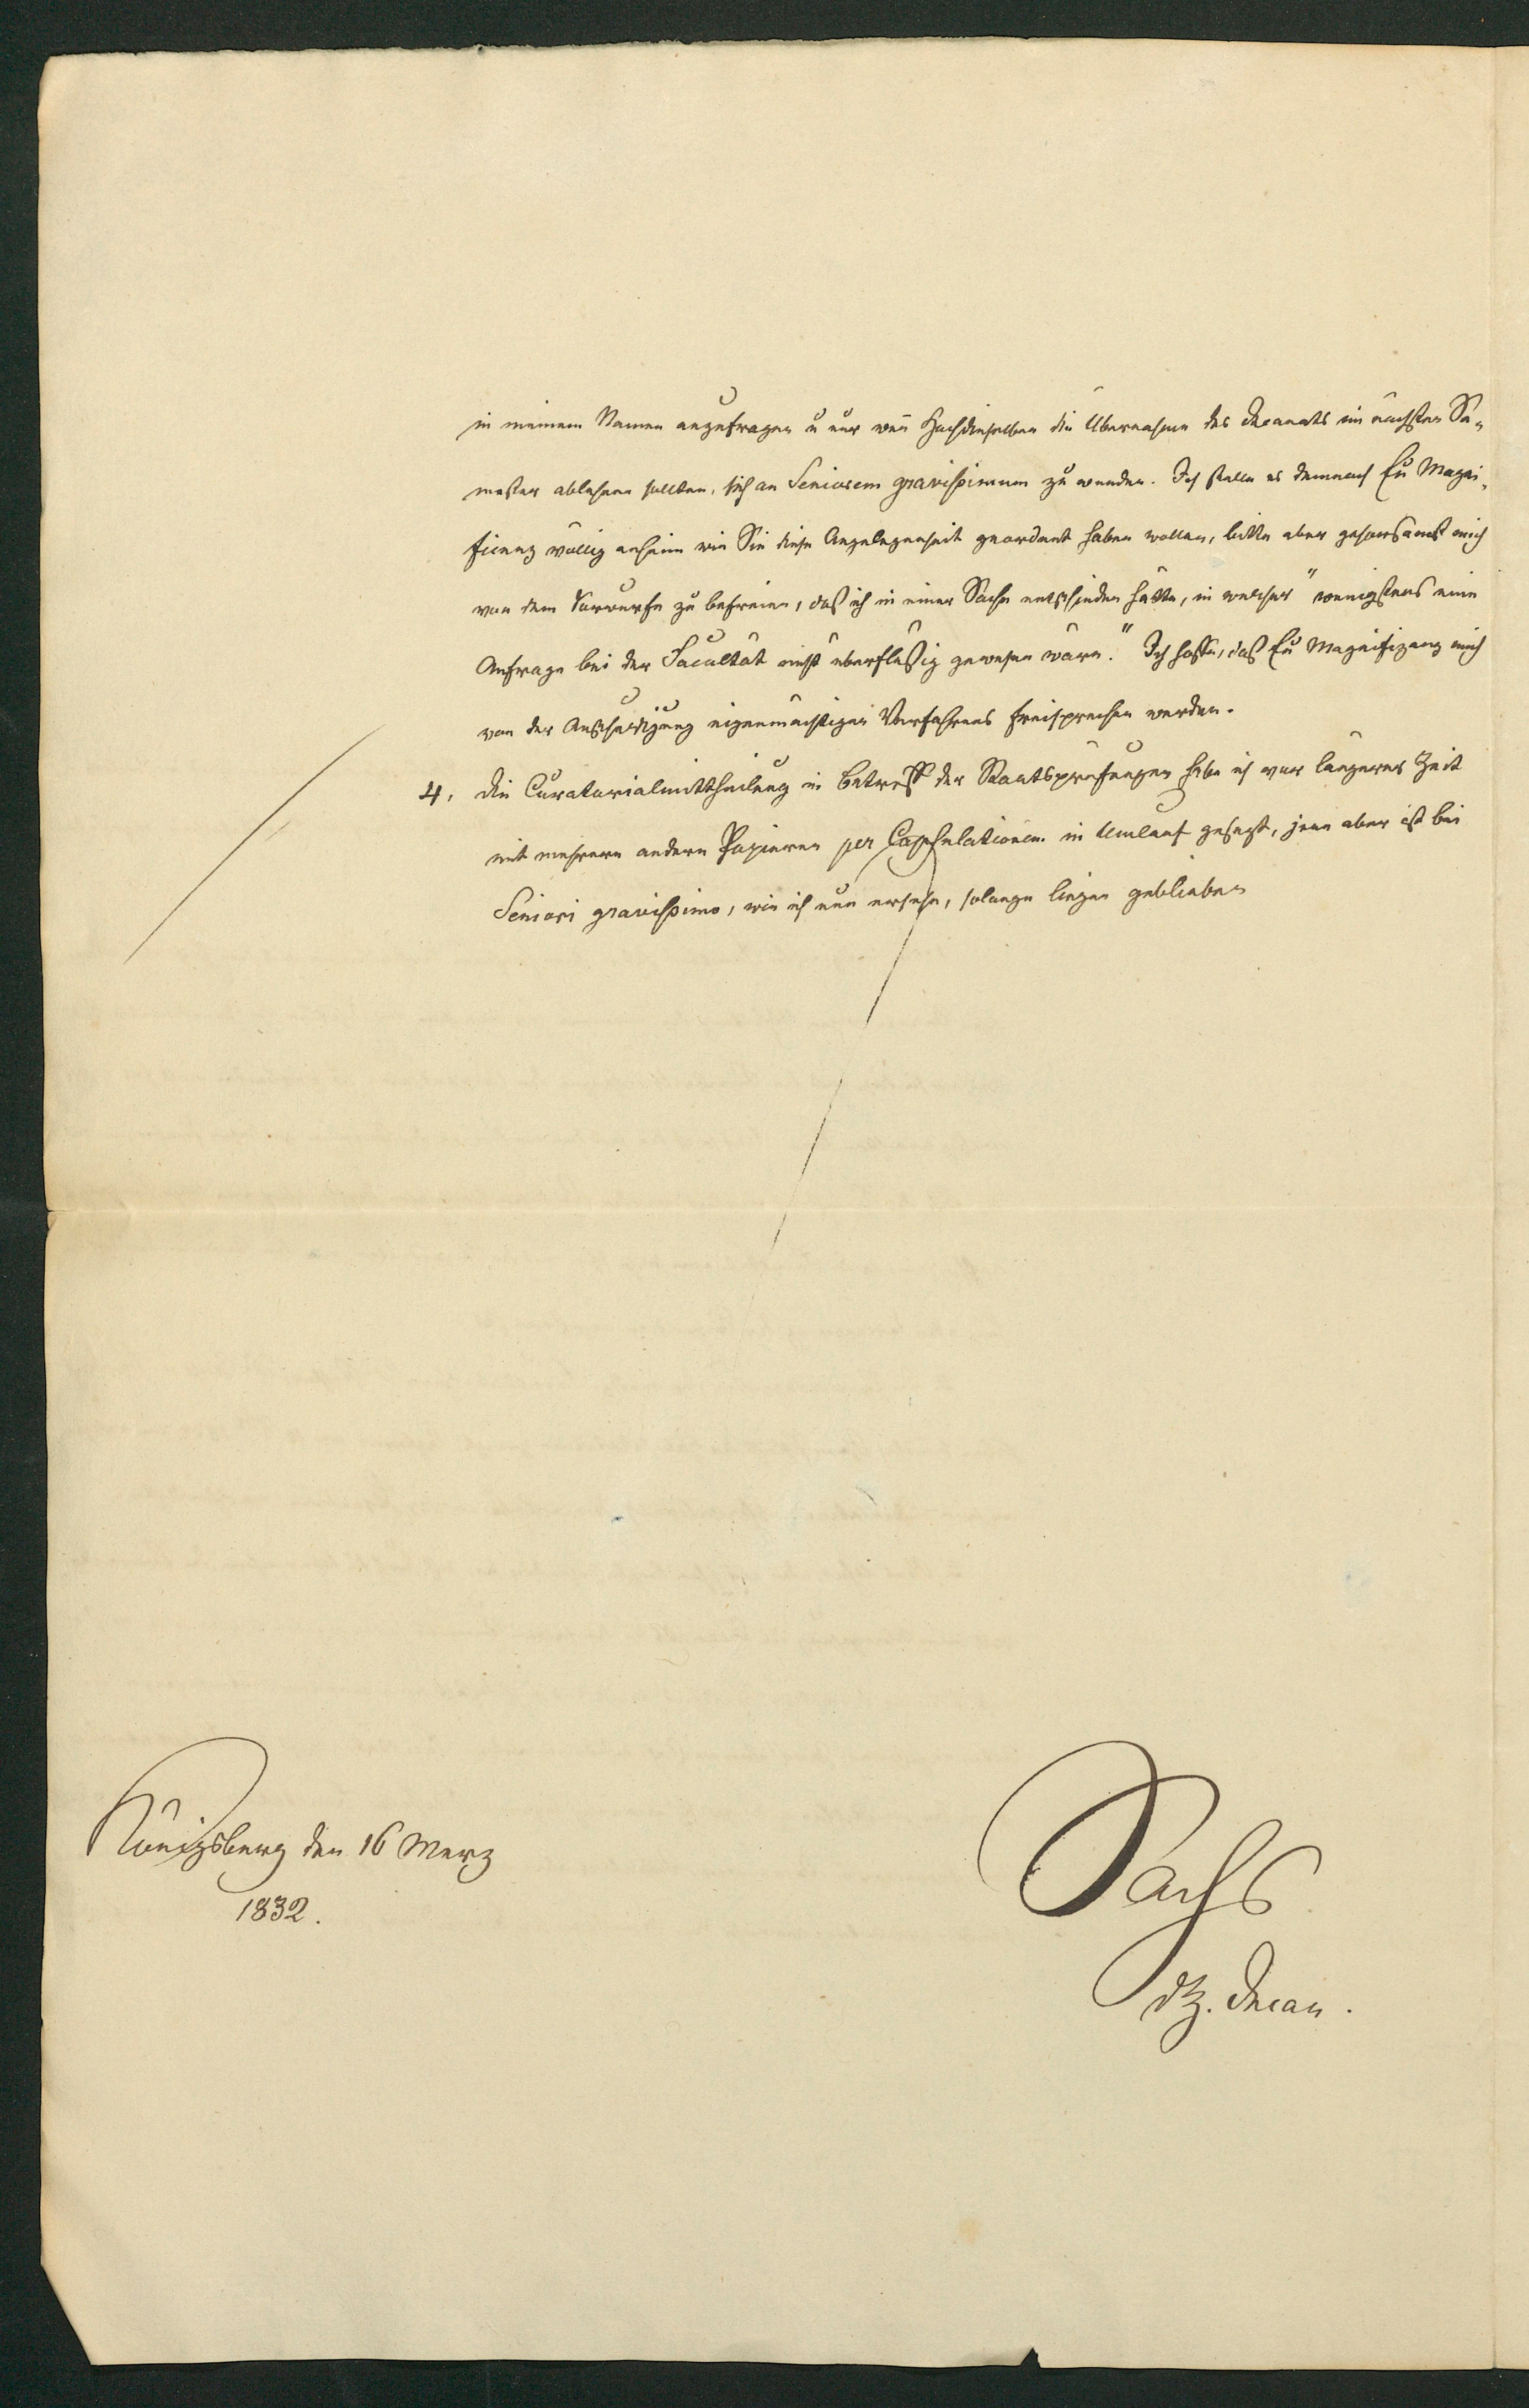 in meinem Namen anzufragen u nur weñ Hochdieselben die Übernahme des Decanats im nächsten Se-
mester ablehnen sollten, sich an Seniorem gravissimum zu wenden. Ich stelle es demnach Eu Magni-
ficenz völlig anheim wie Sie diese Angelegenheit geordnet haben wollen, bitte aber gehorsamst mich
von dem Vorwurfe zu befreien, daß ich in einer Sache entschieden hätte, in welcher "wenigstens eine
Anfrage bei der Facultät nicht überflüßig gewesen wäre." Ich hoffe, daß Eu Magnifizenz mich
von der Anschuldigung eigenmächtigen Verfahrens freisprechen werden.
4, Die Curatorialmittheilung in Betreff der Staatsprüfungen habe ich vor längerer Zeit
mit mehrern andern Papieren per Capsulationem in Umlauf gesetzt, jene aber ist bei
Seniori gravissimo, wie ich nun ersehe, solange liegen geblieben
Königsberg den 16 Merz
1832.
Sachs
dz. Decan.